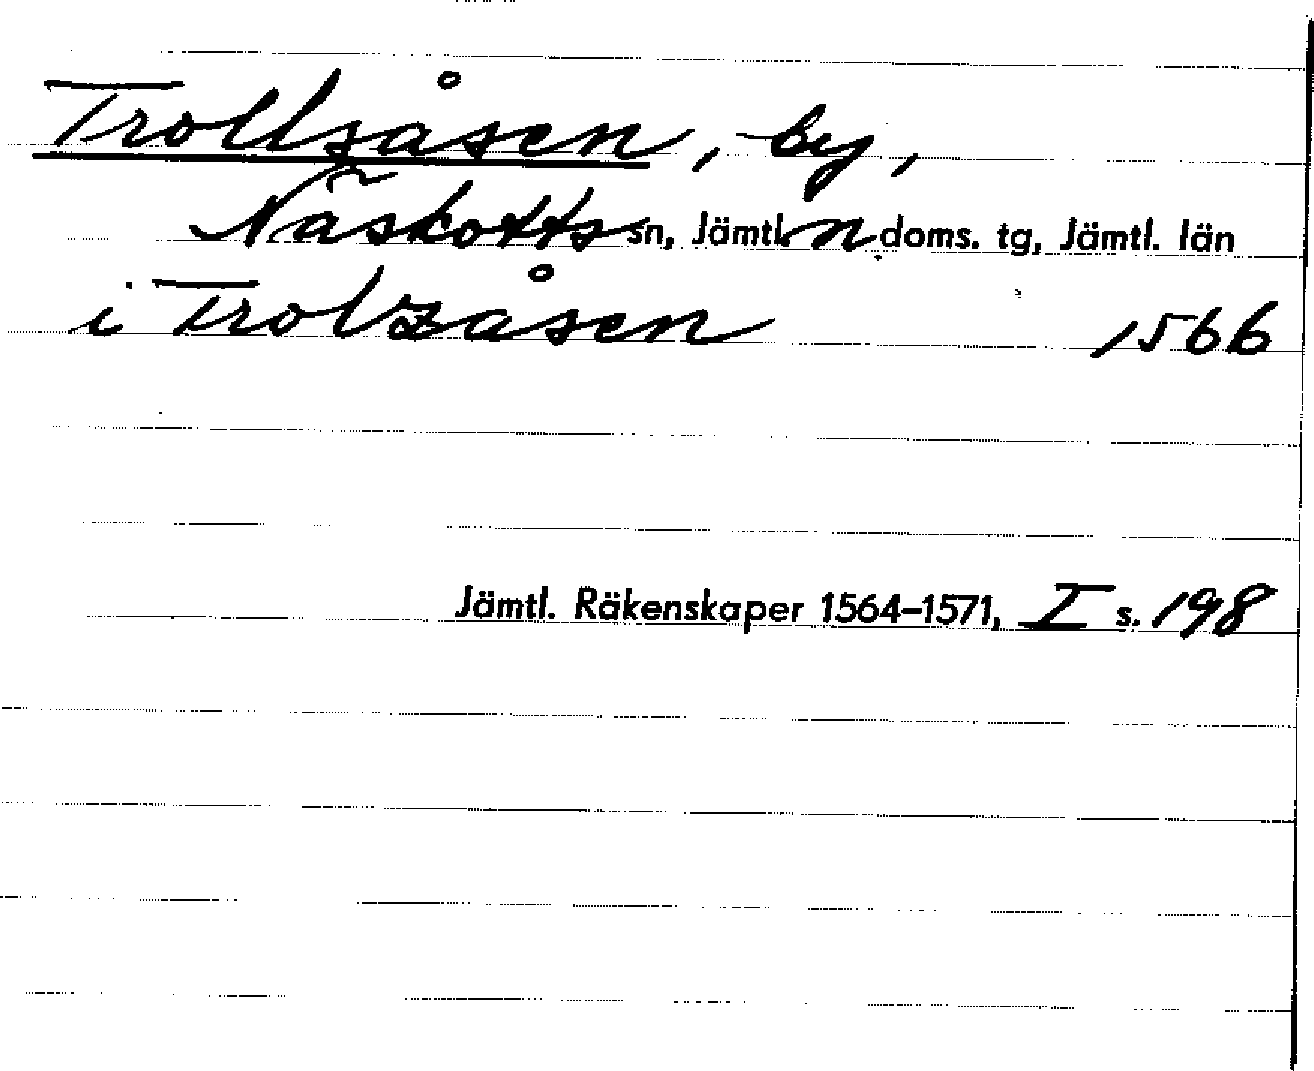 Trollsåsen, by,
Näskotts sn, Jämtl. n doms. tg, Jämtl. län
i Trolzåsen 1566
Jämtl. Räkenskaper 1564–1571, I s. 198